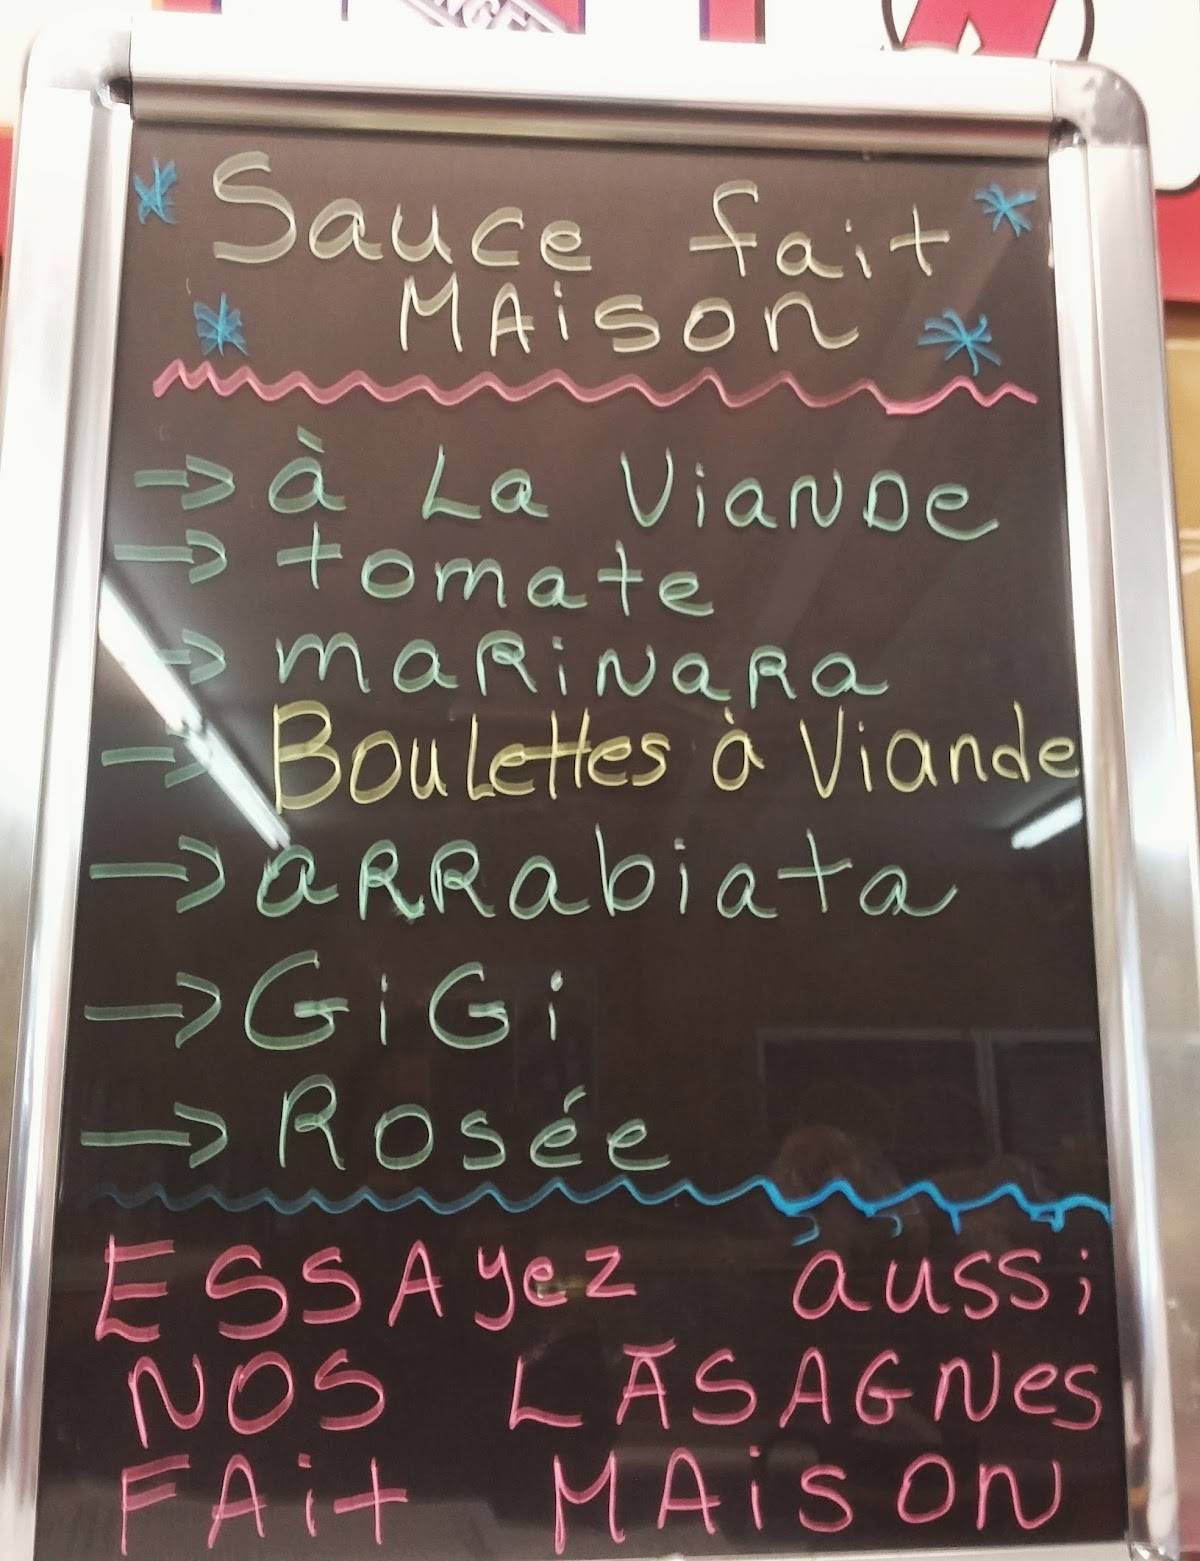 Sauce fait
MAison
→ à La ViaNDe
→ tomate
→ maRiNaRa
→ Boulettes à Viande
→ aRRabiata
→ GiGi
→ Rosée
ESSAyez aussi
NOS LASAGNes
FAit MAison